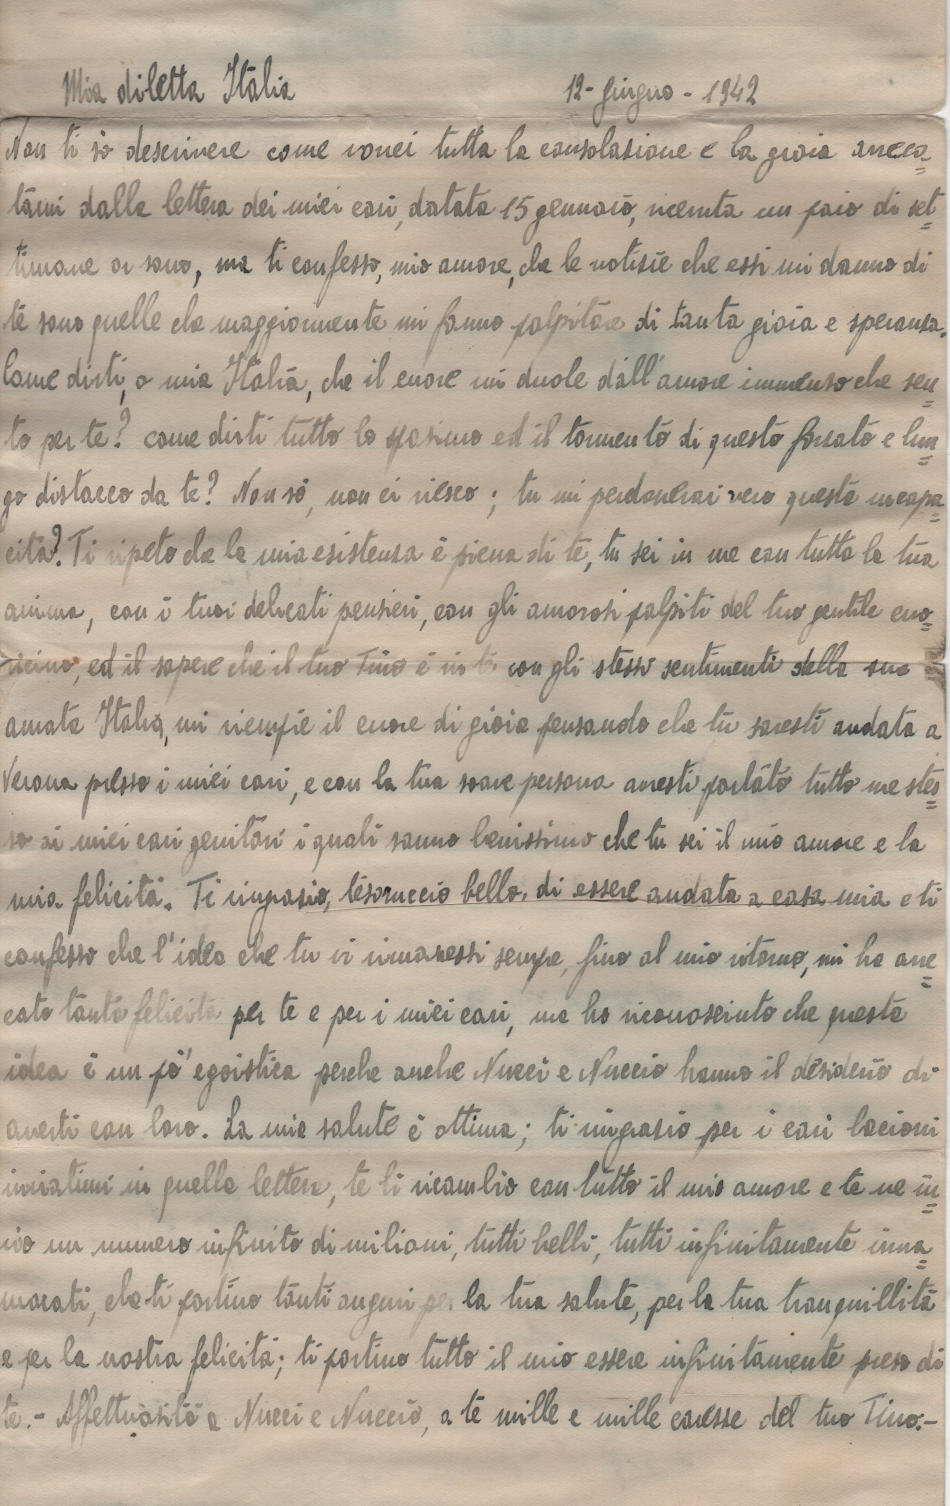 Mia diletta Italia 12 - Giugno - 1942
Non ti sò descrivere come vorrei tutta la consolazione e la gioia arreca=
tami dalla lettera dei miei cari, datata 15 gennaio, ricevuta un paio di set=
timane or sono, ma ti confesso, mio amore, che le notizie che essi mi danno di
te sono quelle che maggiormente mi fanno palpitare di tanta gioia e speranza.
Come dirti, o mia Italia, che il cuore mi duole dall'amore immenso che sen=
to per te? come dirti tutto lo spasimo ed il tormento di questo forzato e lun=
go distacco da te? Non sò, non ci riesco; tu mi perdonerai vero questa incapa=
cità? Ti ripeto che la mia esistenza è piena di te, tu sei in me con tutta la tua
anima, con i tuoi delicati pensieri, con gli amorosi palpiti del tuo gentile cuo=
ricino, ed il sapere che il tuo Tino è in te con gli stessi sentimenti della sua
amata Italia, mi riempie il cuore di gioia pensando che tu saresti andata a
Verona presso i miei cari, e con la tua soave persona avresti portato tutto me stes=
so ai miei cari genitori i quali sanno benissimo che tu sei il mio amore e la
mia felicità. Ti ringrazio, tesoruccio bello, di essere andata a casa mia e ti
confesso che l'idea che tu vi rimanessi sempre, fino al mio ritorno, mi ha arre=
cato tanta felicità per te e per i miei cari, ma ho riconosciuto che questa
idea è un pò egoistica perche anche Nucci e Nuccio hanno il desiderio di
averti con loro. La mia salute è ottima; ti ringrazio per i cari bacioni
inviatimi in quella lettera, te li ricambio con tutto il mio amore e te ne in=
vio un numero infinito di milioni, tutti belli, tutti infinitamente inna=
morati, che ti portino tanti auguri per la tua salute, per la tua tranquillità
e per la nostra felicità; ti portino tutto il mio essere infinitamente preso di
te.- Affettuosità a Nucci e Nuccio, a te mille e mille carezze del tuo Tino.-